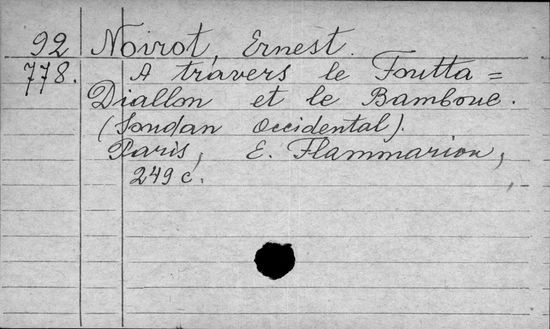 92 Noirot, Ernest.
778. A travers le Foutta=
Diallon et le Bambouc.
(Soudan Occidental).
Paris, E. Flammarion,
249 c.